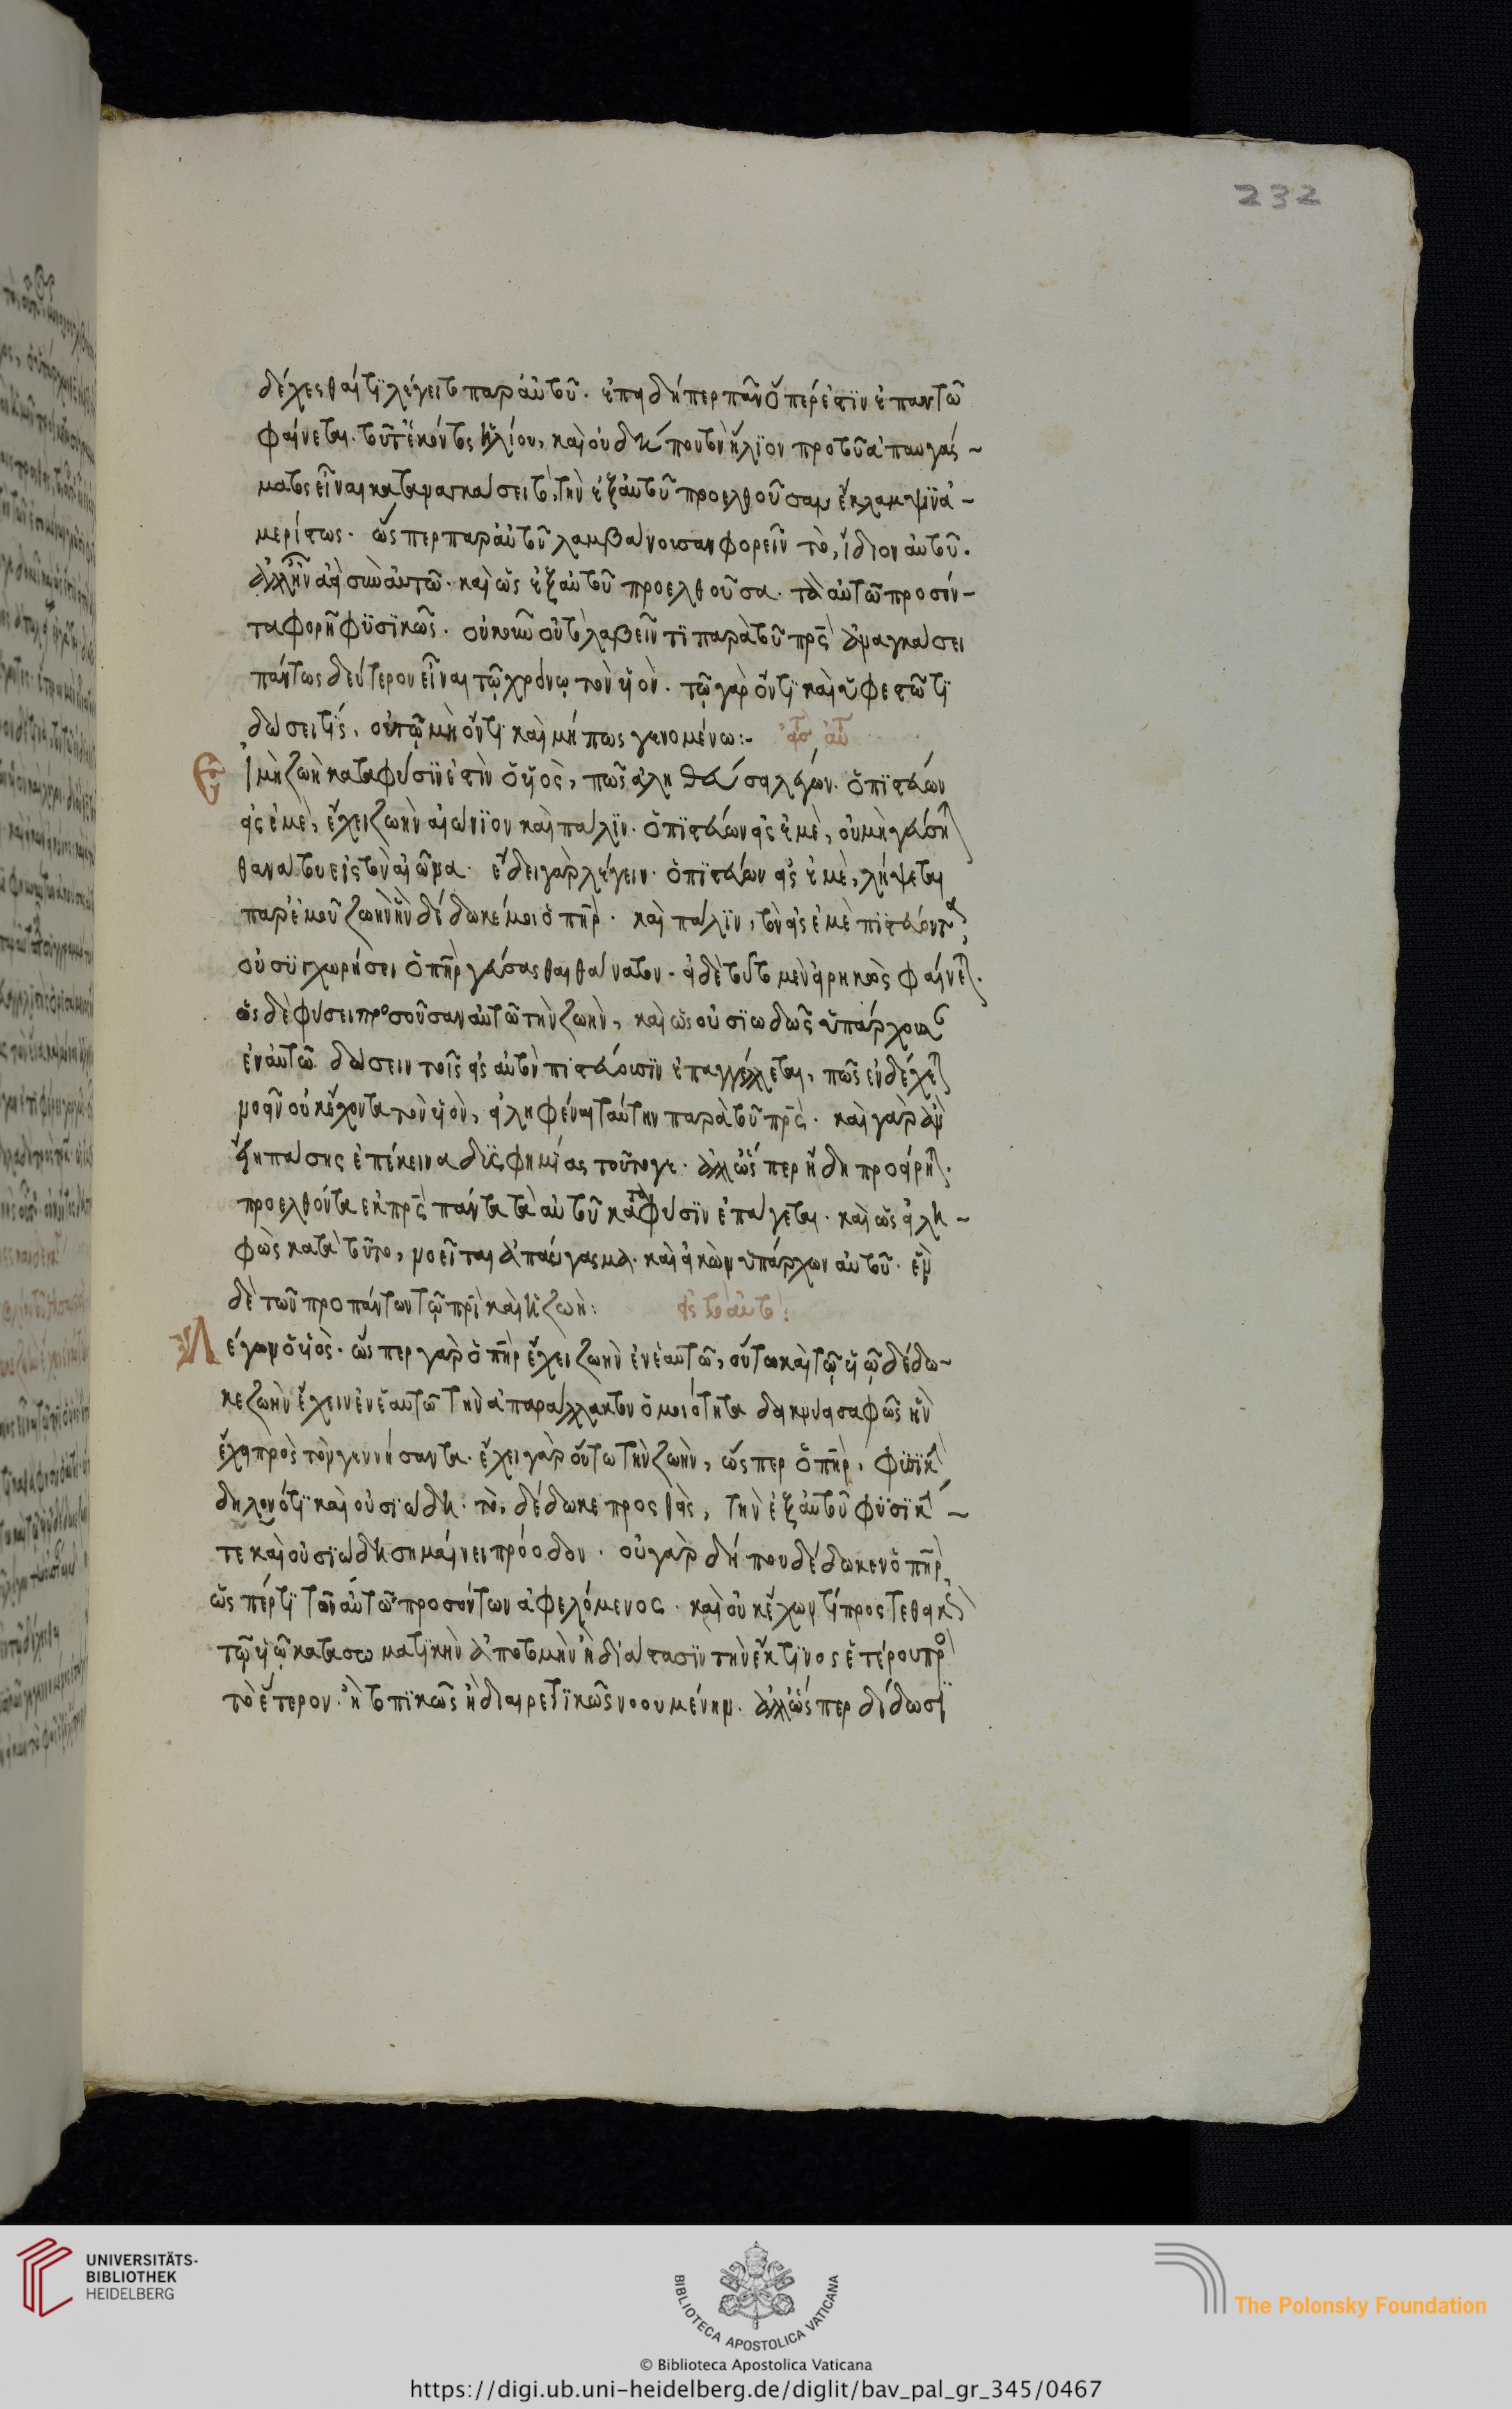 232
δέχεσθαί τϊ λέγειτο παρ αὐτοῦ. ἐπειδήπερ πᾶν ὅπερ ἐστὶν ἐπ αυτῶ
φαίνεται. τοῦ τεκόντος ἡλίου, καὶ οὐ δήπου τὸν ἥλϊον προ τοῦ ἀπαυγάσ-
ματος εἶναι κατασκευάσει τὸ, τὴν ἐξ αὐτοῦ προελθοῦσαν ἔκλαμψϊν ἀ-
μερίστως. ὥσπερ παρ αὐτοῦ λαμβάνουσαν φορεῖν τὸ, ἴδιον αὐτοῦ.
ἀλλ ἦν ἀεὶ σὺν αὐτῶ. καὶ ὡς ἐξ αὐτοῦ προελθοῦσα. τὰ αὐτῶ προσόν-
τα φορεῖ φϋσϊκῶς. οὐκοῦν οὐ τὸ λαβεῖν τϊ παρὰ τοῦ πρς ἀναγκάσει
πάντως δεύτερον εἶναι τῷ χρόνῳ τὸν υἱὸν. τῷ γὰρ ὄντϊ καὶ ὑφεστῶτϊ
δώσει τίς, οὐ τῷ μὴ ὄντϊ καὶ μήπως γενομένω:-
Εἰ μὴ ζωὴ κατα φύσϊν ἐστὶν ὁ υἱὸς, πῶς ἀληθεύσει λέγων. ὁ πϊστεύων
εἰς ἐμὲ, ἔχει ζωὴν αἰώνϊον καὶ πάλϊν. ὁ πϊστεύων εἰς ἐμὲ, οὐ μὴ γεύση
θανάτου εἰς τὸν αἰῶνα. ἔδει γὰρ λέγειν. ὁ πϊστεύων εἰς ἐμὲ, λήψεται
παρ ἐμοῦ ζωὴν ἣν δέδωκέ μοι ὁ πηρ. καὶ πάλϊν, τὸν εἰς ἐμὲ πϊστεύοντα
οὐ συγχωρήσει ὁ πηρ γεύσασθαι θανάτου. εἰ δὲ τοῦτο μὲν εἰρηκὼς φαίνε.
ὡς δὲ φύσει προσοῦσαν αὐτῶ τὴν ζωὴν, καὶ ὡς οὐσϊωδῶς ὑπάρχουσ
ἐν αὐτῶ δώσειν τοῖς εἰς αὐτὸν πϊστεύουσϊν ἐπαγγέλλεται, πῶς ἐνδέχε
νοεῖν οὐκ ἔχοντα τὸν υἱὸν, εἰληφέναι ταύτην παρὰ τοῦ πρς. καὶ γὰρ ἂν
εἴη πάσης ἐπέκεινα δϋσφημίας τοῦτογε. ἀλλ ὥσπερ ἤδη προείρη.
προελθόντα ἐκ πρς πάντα τὰ αὐτοῦ κατα φύσϊν ἐπάγεται. καὶ ὡς εἰλη-
φὼς κατα τοῦτο, νοεῖται ἀπαύγασμα. καὶ εἰκὼν ὑπάρχων αὐτοῦ. ἐν
δὲ τῶν προ πάντων τῷ πρι καὶ ἡ ζωὴ:
εἰς τὸ αὐτὸ:
Λέγων ὁ υἱὸς. ὥσπερ γὰρ ὁ πηρ ἔχει ζωὴν ἐν ἑαυτῶ, οὕτω καὶ τῷ υἱῷ δέδω-
κε ζωὴν ἔχειν ἐν ἑαυτῶ τὴν ἀπαράλλακτον ὁμοιότητα δεικνύει σαφῶς ἣν
ἔχει πρὸς τὸν γεννήσαντα. ἔχει γὰρ οὕτω τὴν ζωὴν, ὥσπερ ὁ πηρ, φϋσϊκ
δηλονότϊ καὶ οὐσϊώδη. τὸ, δέδωκε προσθεὶς, τὴν ἐξ αὐτοῦ φϋσϊκ-
τε καὶ οὐσϊώδη σημαίνει πρόοδον. οὐ γὰρ δήπου δέδωκεν ὁ πηρ
ὥσπέρ τϊ τῶν αὐτῶ προσόντων ἀφελόμενος. καὶ οὐκ ἔχωντί προστεθεικ
τῷ υἱῷ κατα σωματϊκὴν ἀποτομὴν ἢ διάστασϊν τὴν ἔκ τϊνος ἑτέρου πρ
τὸ ἕτερον. ἢ τοπϊκῶς ἢ διαιρετϊκῶς νοουμένην. ἀλλ ὥσπερ δίδωσϊ
UNIVERSITÄTS-
BIBLIOTHEK
HEIDELBERG
BIBLIOTECA APOSTOLICA VATICANA
The Polonsky Foundation
© Biblioteca Apostolica Vaticana
https://digi.ub.uni-heidelberg.de/diglit/bav_pal_gr_345/0467